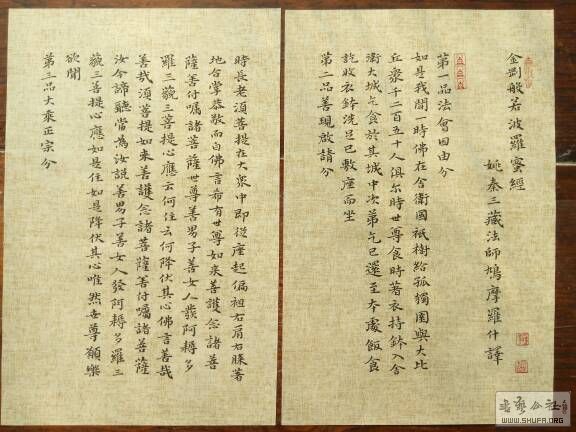 金剛般若波羅蜜經
姚秦三藏法師鳩摩羅什譯
第一品法會因由分
如是我聞一時佛在舍衛國祇樹給孤獨園與大比
丘眾千二百五十人俱尓時世尊食時著衣持鉢入舍
衛大城乞食於其城中次第乞已還至本處飯食
訖收衣鉢洗足已敷座而坐
第二品善現啟請分
時長老須菩提在大眾中即從座起偏袒右肩右膝著
地合掌恭敬而白佛言希有世尊如來善護念諸菩
薩善付囑諸菩薩世尊善男子善女人發阿耨多
羅三藐三菩提心應云何住云何降伏其心佛言善哉
善哉須菩提如來善護念諸菩薩善付囑諸菩薩
汝今諦聽當為汝說善男子善女人發阿耨多羅三
藐三菩提心應如是住如是降伏其心唯然世尊願樂
欲聞
第三品大乘正宗分
WWW.SHUFA.ORG